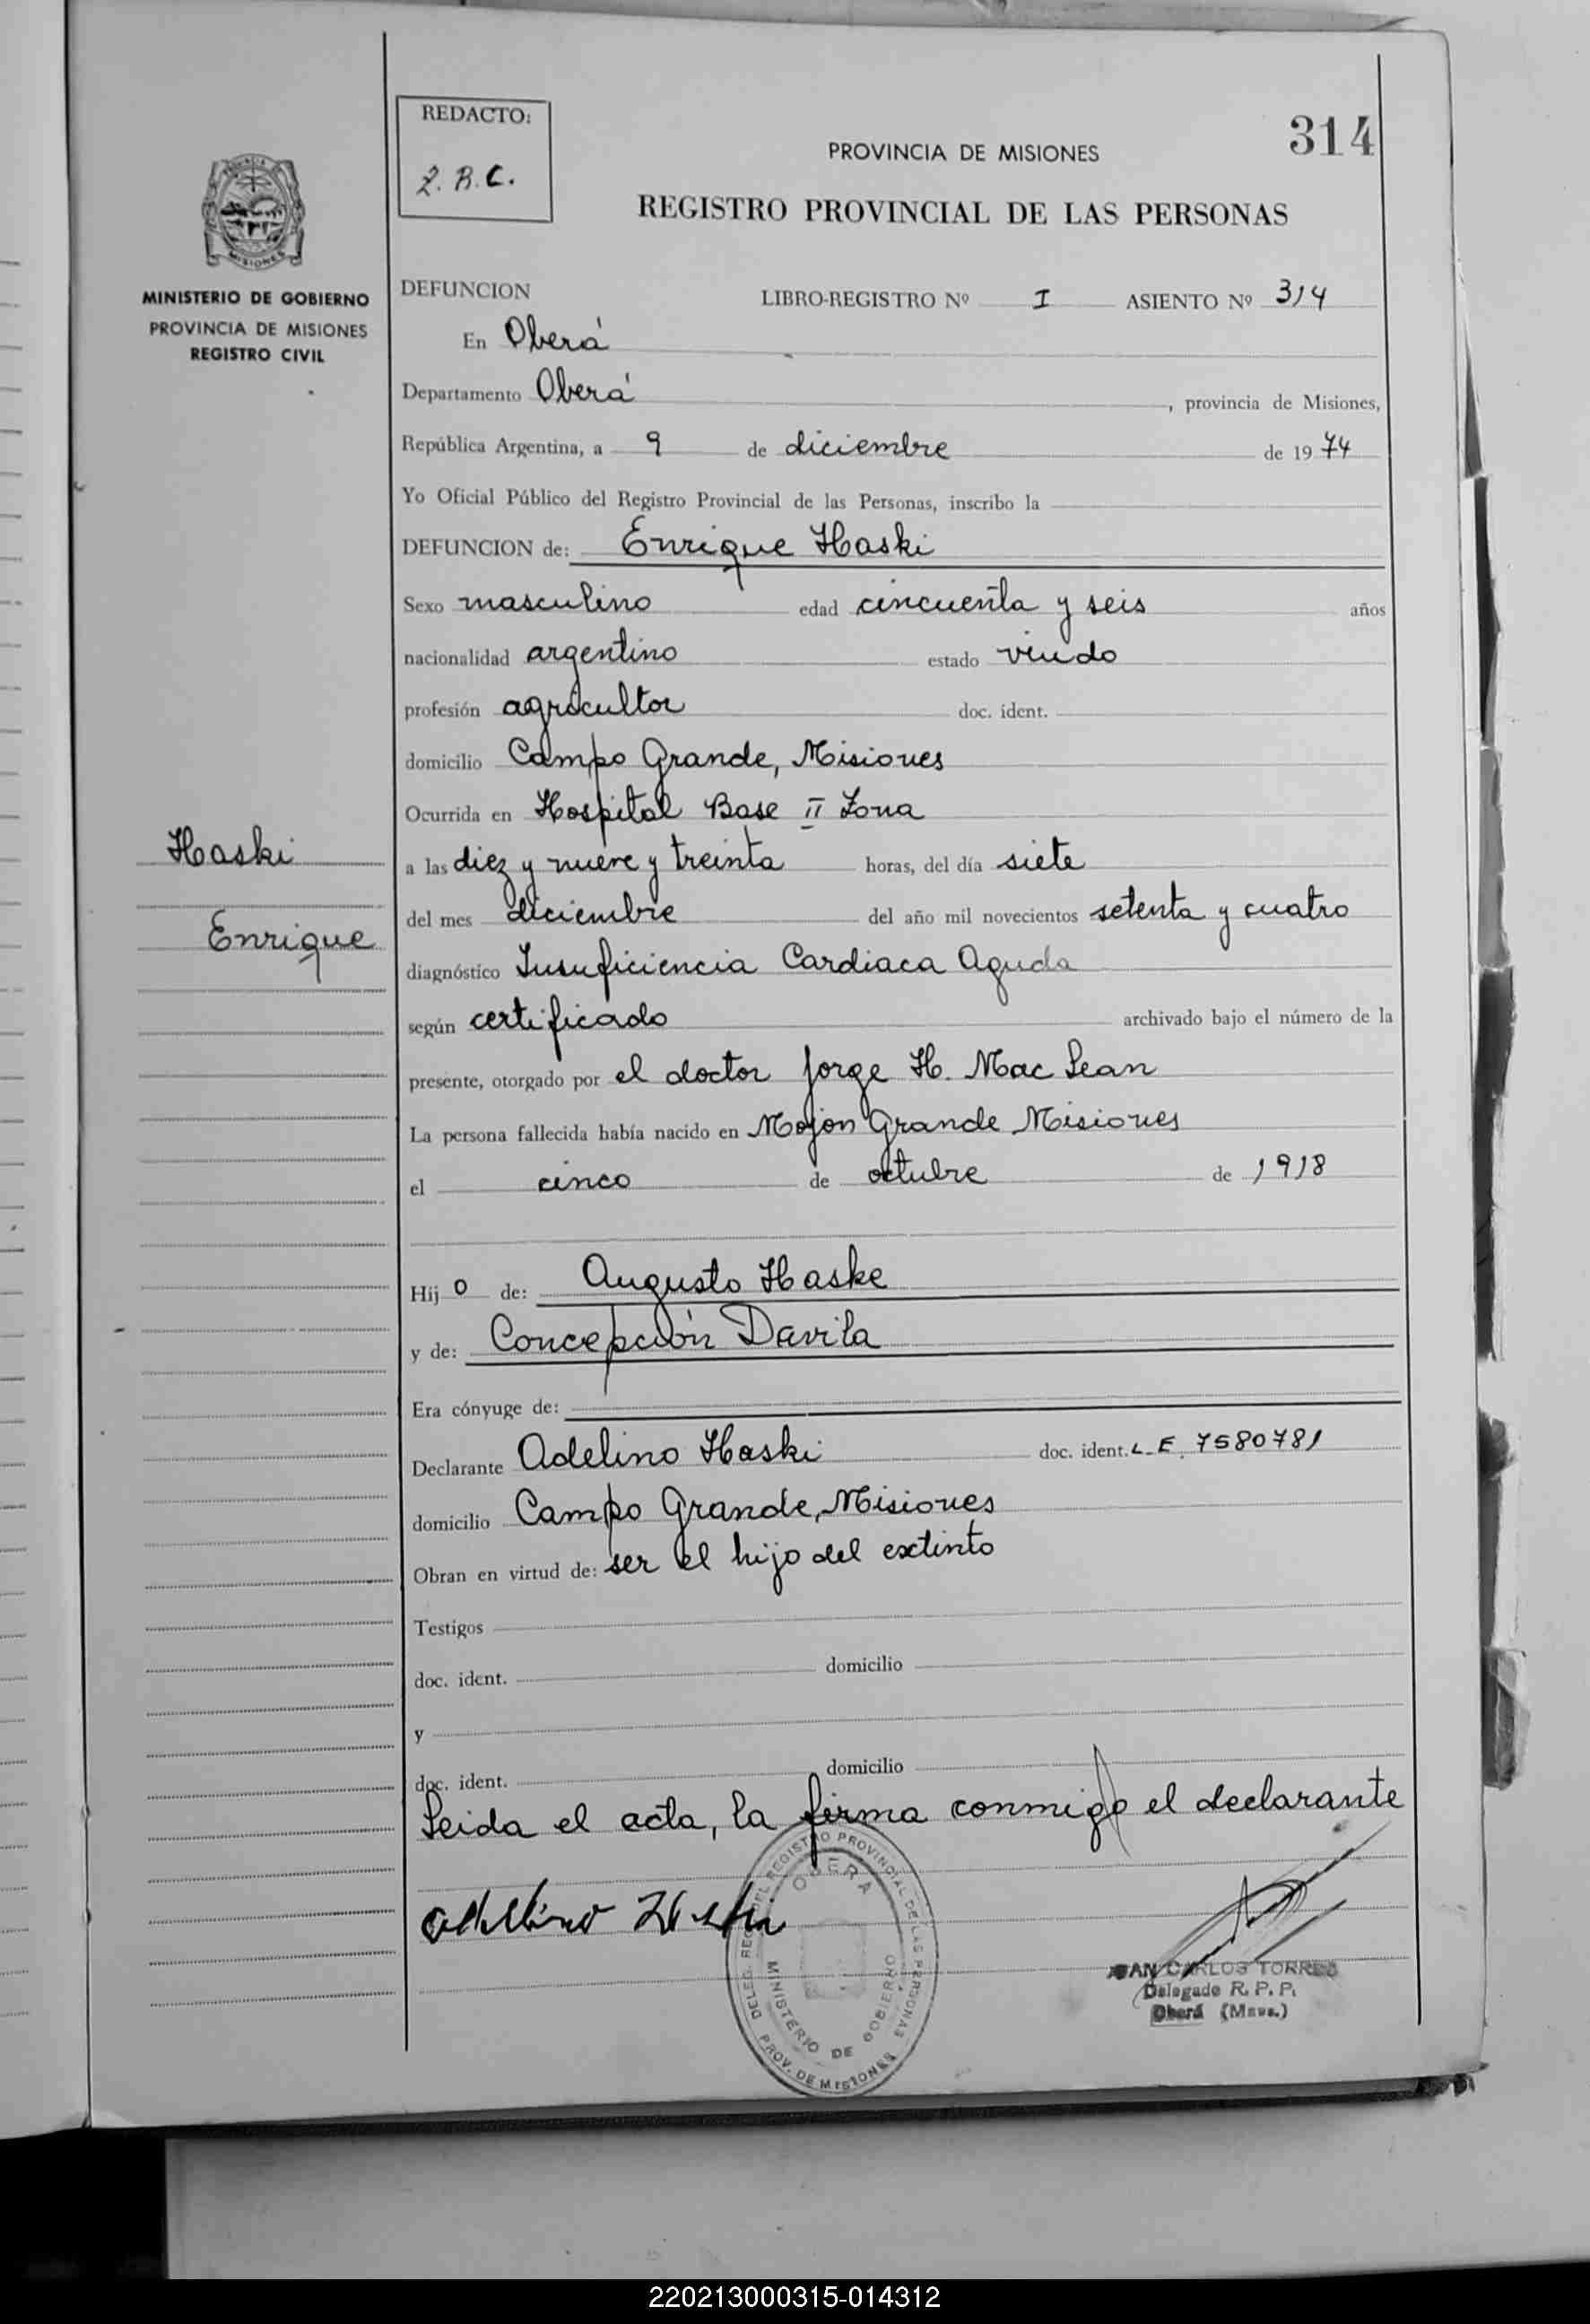 REDACTO:
Z. B. C.
314
PROVINCIA DE MISIONES
REGISTRO PROVINCIAL DE LAS PERSONAS
MISIONES
MINISTERIO DE GOBIERNO
PROVINCIA DE MISIONES
REGISTRO CIVIL
DEFUNCION LIBRO-REGISTRO Nº I ASIENTO Nº 314
En Oberá
Departamento Oberá, provincia de Misiones,
República Argentina, a 9 de diciembre de 1974
Yo Oficial Público del Registro Provincial de las Personas, inscribo la
DEFUNCION de: Enrique Haski
Sexo masculino edad cincuenta y seis años
nacionalidad argentino estado viudo
profesión agricultor doc. ident.
domicilio Campo Grande, Misiones
Ocurrida en Hospital Base II Zona
Haski
Enrique
a las diez y nueve y treinta horas, del día siete
del mes diciembre del año mil novecientos setenta y cuatro
diagnóstico Insuficiencia Cardiaca Aguda
según certificado archivado bajo el número de la
presente, otorgado por el doctor Jorge H. Mac Lean
La persona fallecida había nacido en Mojon Grande Misiones
el cinco de octubre de 1918
Hijo de: Augusto Haske
y de: Concepción Davila
Era cónyuge de:
Declarante Adelino Haski doc. ident. L.E. 7580781
domicilio Campo Grande, Misiones
Obran en virtud de: ser el hijo del extinto
Testigos
doc. ident. domicilio
y
doc. ident. domicilio
Leida el acta, la firma conmigo el declarante
DELEG. REG. DEL REGISTRO PROVINCIAL DE LAS PERSONAS
OBERA
MINISTERIO DE GOBIERNO
PROV. DE MISIONES
JUAN CARLOS TORRES
Delegado R. P. P.
Oberá (Mnes.)
220213000315-014312